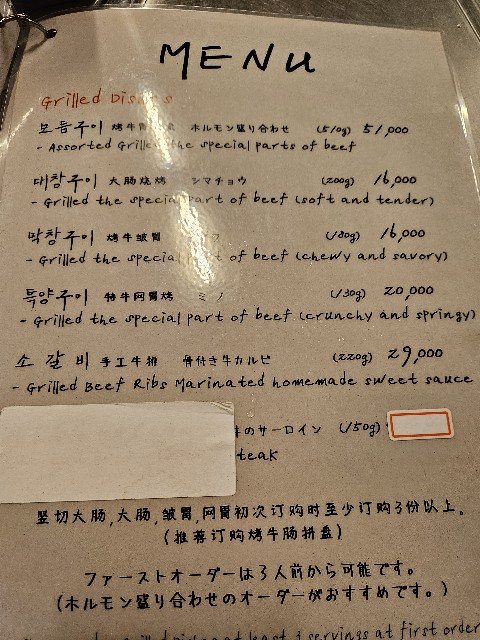 MENU
Grilled Dishes
모듬구이 烤牛 ホルモン盛り合わせ (510g) 51,000
- Assorted Grilled the special parts of beef
대창구이 大肠烧烤 シマチョウ (200g) 16,000
- Grilled the special part of beef (soft and tender)
막창구이 烤牛皱胃 (180g) 16,000
- Grilled the special part of beef (chewy and savory)
특양구이 特牛网胃烤 ミノ (130g) 20,000
- Grilled the special part of beef (crunchy and springy)
소갈비 手工牛排 骨付き牛カルビ (220g) 29,000
- Grilled Beef Ribs Marinated homemade sweet sauce
のサーロイン (150g)
teak
竖切大肠,大肠,皱胃,网胃初次订购时至少订购3份以上。
(推荐订购烤牛肠拼盘)
ファーストオーダーは3人前から可能です。
(ホルモン盛り合わせのオーダーがおすすめです。)
at least 3 servings at first order